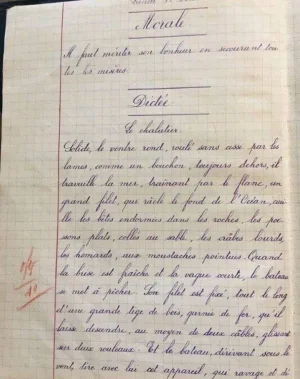 Morale
Il faut mériter son bonheur en secourant tou
tes les misères.
Dictée
Le chalutier.
Solide, le ventre rond, roulé sans cesse par les
lames, comme un bouchon, toujours dehors, il
travaille la mer, traînant par le flanc, un
grand filet, qui râcle le fond de l'Océan, cueil
lle les bêtes endormies dans les roches les pois
sons plats, collés au sable, les crabes lourds,
les homards, aux moustaches pointues. Quand
la brise est fraîche et la vague courte, le bateau
se met à pêcher. Son filet est fixé, tout le long
d'une grande tige de bois, garnie de fer, qu'il
laisse descendre, au moyen de deux câbles, glissant
sur deux rouleaux. Et le bateau, dérivant sous le
vent, tire avec lui cet appareil, qui ravage et dé